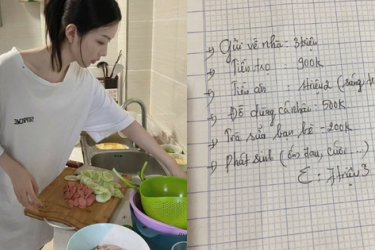 Gửi về nhà: 3 triệu
Tiền trọ 900k
Tiền ăn 1triệu2 (sáng
Đồ dùng cá nhân: 500k
Trà sữa bạn bè: 200k
Phát sinh (ốm đau, cưới...)
Σ: 7triệu3